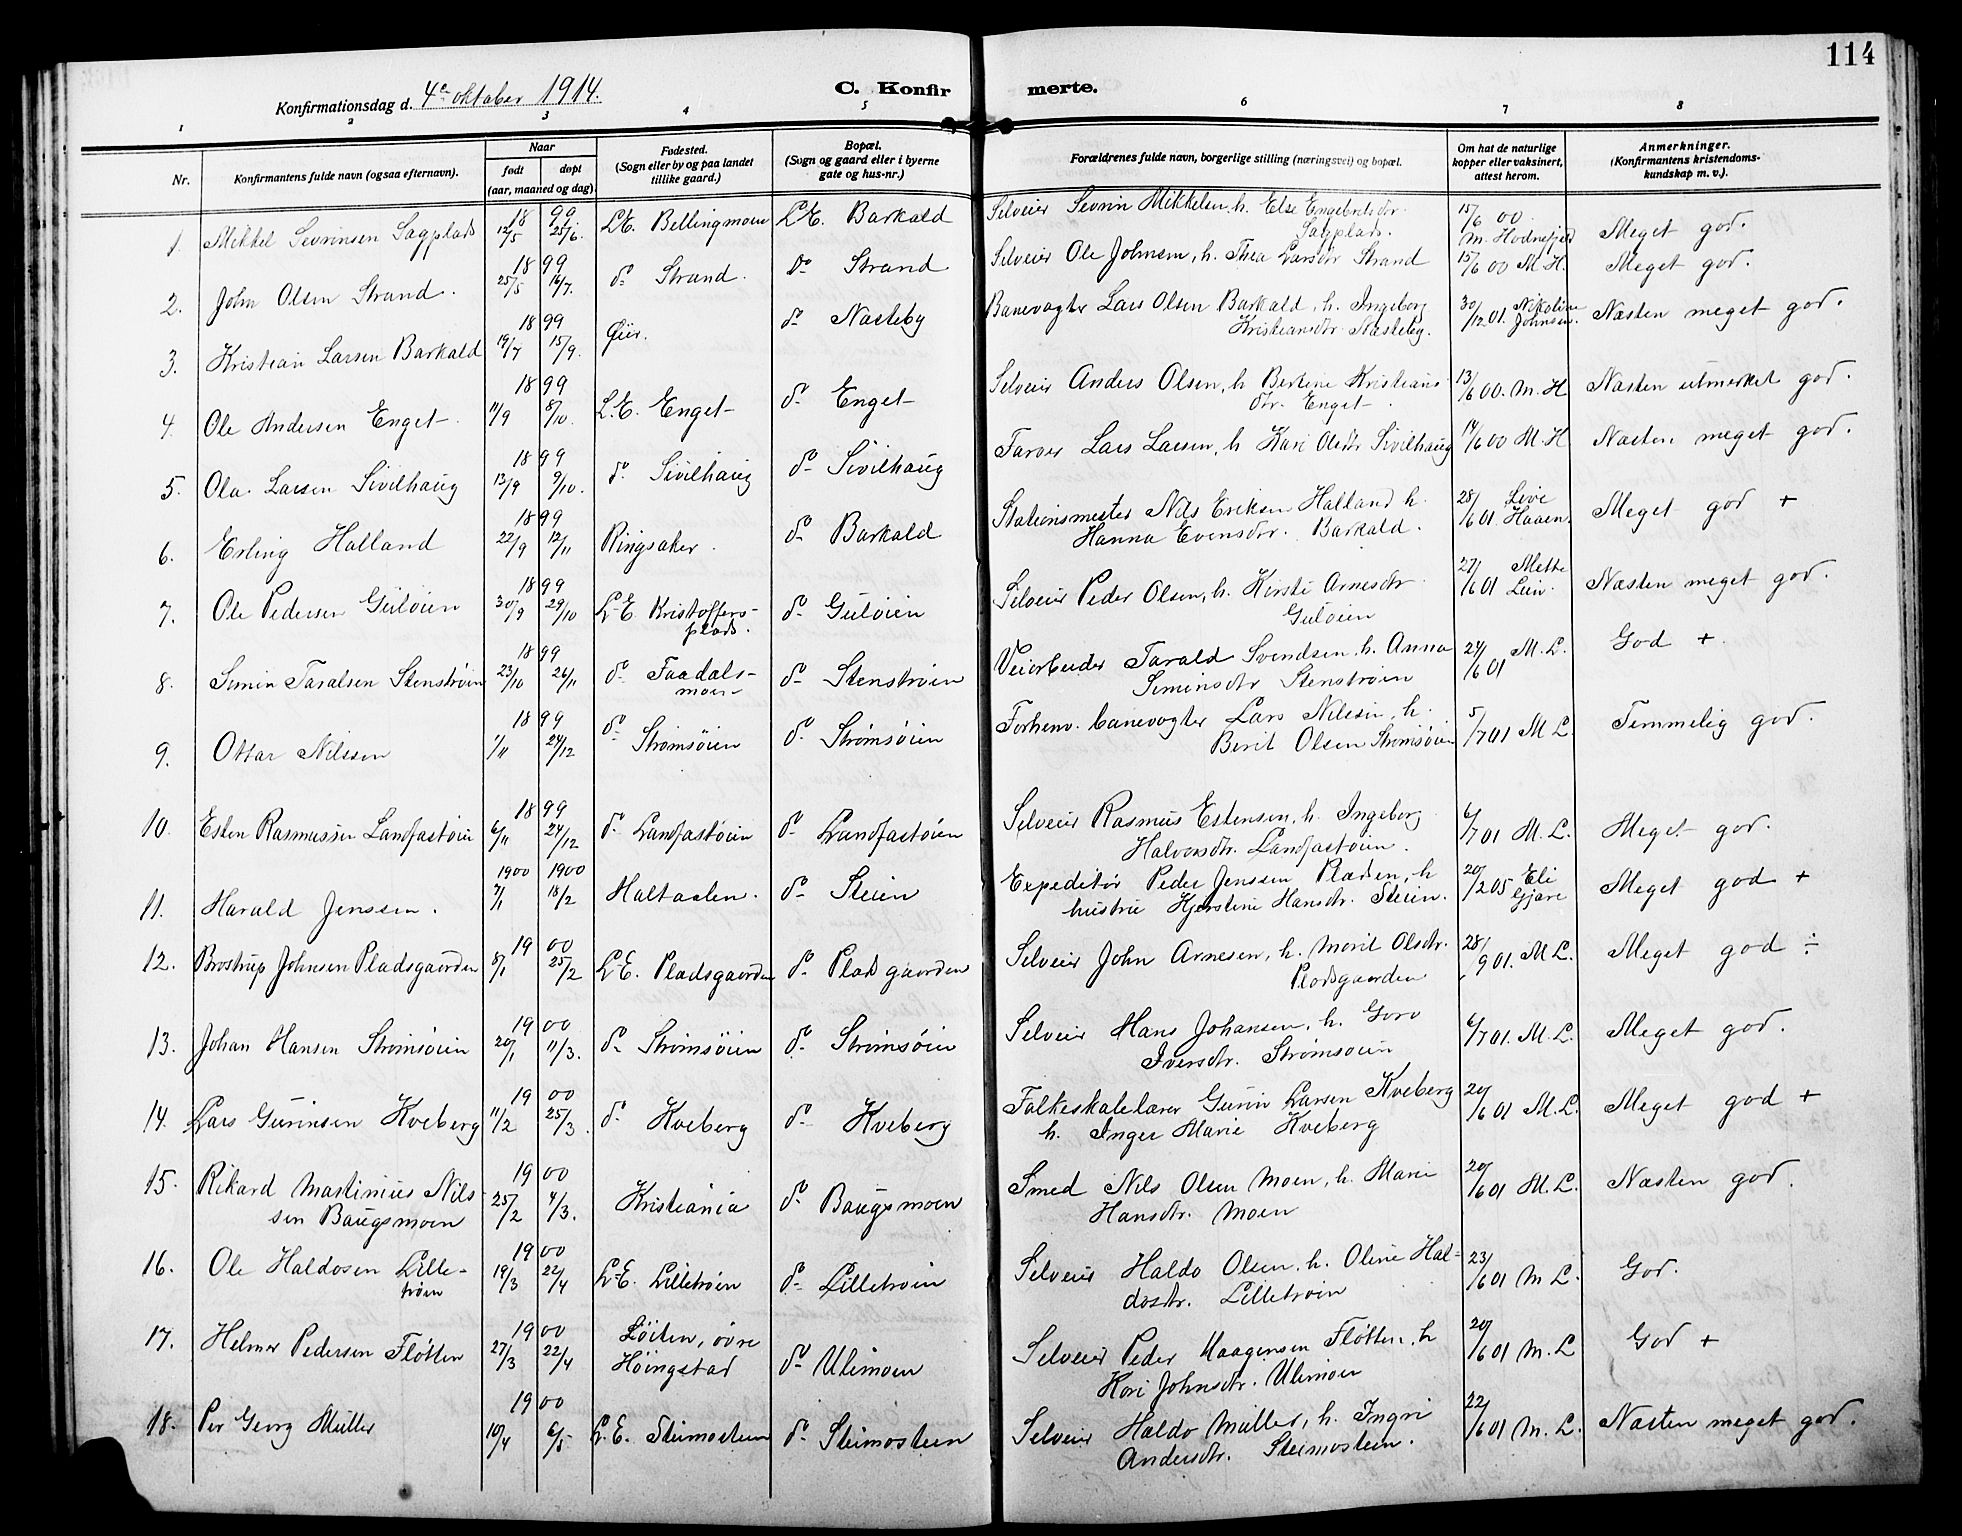 114
Konfirmationsdag d. 4de oktober 1914.
C. Konfirmerte.
1 2 3 4 5 6 7 8
Nr.
Konfirmantens fulde navn (ogsaa efternavn).
Naar
født døpt
(aar, maaned og dag).
Fødested.
(Sogn eller by og paa landet
tillike gaard.)
Bopæl.
(Sogn og gaard eller i byerne
gate og hus-nr.)
Forældrenes fulde navn, borgerlige stilling (næringsvei) og bopæl.
Om hat de naturlige
kopper eller vaksinert,
attest herom.
Anmerkninger.
(Konfirmantens kristendoms-
kundskap m. v.).
1. Mikkel Sevrinsen Sagplads 1899 12/5 25/6. L.E. Bellingmoen L.E. Barkald Selveier Sevrin Mikkelsen, h. Else Engebretsdtr. 15/6 00
Sagplads. M. Hodnefjeld Meget god.
2. John Olsen Strand. 1899 25/5 16/7. do Strand. do Strand Selveier Ole Johnsen, h. Thea Larsdtr Strand 15/6 00 M. H. Meget god.
3. Kristian Larsen Barkald 1899 19/7 15/9. Øier. do Nasteby Banevogter Lars Olsen Barkald, h. Ingeborg 30/12 01. Nikoline
Kristiansdtr. Nasteby. Johnsen. Næsten meget god.
4. Ole Andersen Enget 1899 11/9 8/10. L.E. Enget do Enget Selveier Anders Olsen, h. Bertine Kristians-
dtr. Enget 13/6 00. M. H Næsten utmerket god.
5. Ola Larsen Sivilhaug 1899 13/9 9/10. do Sivilhaug do Sivilhaug Farver Lars Larsen, h Kari Olsdtr Sivilhaug 14/6 00 M. H Næsten meget god.
6. Erling Halland 1899 22/9 12/11 Ringsaker. do Barkald Stationsmester Nils Eriksen Halland h. 28/6 01 Live
Hanna Evensdtr. Barkald. Haaen. Meget god +
7. Ole Pedersen Guløien 1899 30/9 29/10 L.E. Kristoffers-
plads. do Guløien Selveier Peder Olsen, h. Kirsti Arnesdtr 27/6 01 Mette
Guløien Lein. Næsten meget god.
8. Simen Taralsen Stenstrøen 1899 23/10 26/11 do Faadals-
moen do Stenstrøen Veiarbeider Tarald Svendsen h. Anna
Simensdtr Stenstrøen 24/6 01 M. L. God +
9. Ottar Nilssen 1899 1/11 24/12 do Strømsøien do Strømsøien Forhenv. banevogter Lars Nilssen, h.
Berit Olsen Strømsøien 5/7 01 M L. Temmelig god.
10. Esten Rasmussen Landfastøien 1899 6/11 24/12 do Landfastøien do Landfastøien Selveier Rasmus Estensen, h. Ingeborg
Halvorsdtr. Landfastøien. 6/7 01 M. L. Meget god.
11. Harald Jenssen. 1900 7/1 1900 18/2 Haltaalen. do Steien Expeditør Peder Jenssen Pladsen, h
hustru Kjerstine Hansdtr. Steien. 20/2 05 Eli
Gjøre Meget god +
12. Brostrup Johnsen Pladsgaarden 1900 8/1 25/2 L.E. Pladsgaarden do Pladsgaarden Selveier John Arnesen, h. Marit Olsdtr.
Pladsgaarden 28/9 01. M L. Meget god ÷
13. Johan Hansen Strømsøien 1900 20/1 11/3. do Strømsøien do Strømsøien Selveier Hans Johansen, h. Goro
Iversdtr. Strømsøien 6/7 01. M. L. Meget god.
14. Lars Gurinsen Kveberg 1900 11/2 25/3. do Kveberg do Kveberg Folkeskolelærer Gurin Larsen Kveberg
h. Inger Marie Kveberg 20/6 01 M. L. Meget god +
15. Rikard Martinius Nils-
sen Baugsmoen 1900 25/2 4/3. Kristiania do Baugsmoen Smed Nils Olsen Moen, h. Marie
Hansdtr. Moen 20/6 01 M. L. Næsten god.
16. Ole Haldosen Lille-
trøen 1900 19/3 22/4 L.E. Lilletrøen do Lilletrøen Selveier Haldo Olsen, h. Oline Hal-
dosdtr. Lilletrøen 23/6 01 M L. God.
17. Helmer Pedersen Fløtten 1900 27/3 22/4 Løiten, øvre
Høingstad do Ulimoen Selveier Peder Haagensen Fløtten, h
Kari Johnsdtr. Ulimoen 20/6 01 M. L God +
18. Per Georg Müller 1900 10/4 6/5 L.E. Steimosteen do Steimosteen Selveier Haldo Müller, h. Ingri
Andersdtr. Steimosteen. 22/6 01 M. L. Næsten meget god.